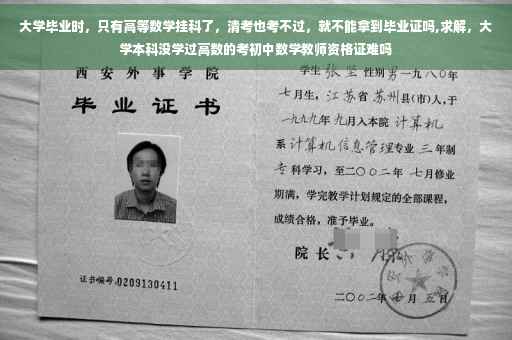 大学毕业时，只有高等数学挂科了，清考也考不过，就不能拿到毕业证吗,求解，大
学本科没学过高数的考初中数学教师资格证难吗
西安外事学院
毕业证书
证书编号:0209130411
学生 张坚 性别男一九八〇年
七月生，江苏省苏州县(市)人,于
一九九九年九月入本院 计算机
系计算机信息管理专业 三年制
专科学习，至二〇〇二年 七月修业
期满，学完教学计划规定的全部课程，
成绩合格，准予毕业。
院长
二〇〇二年 月五日